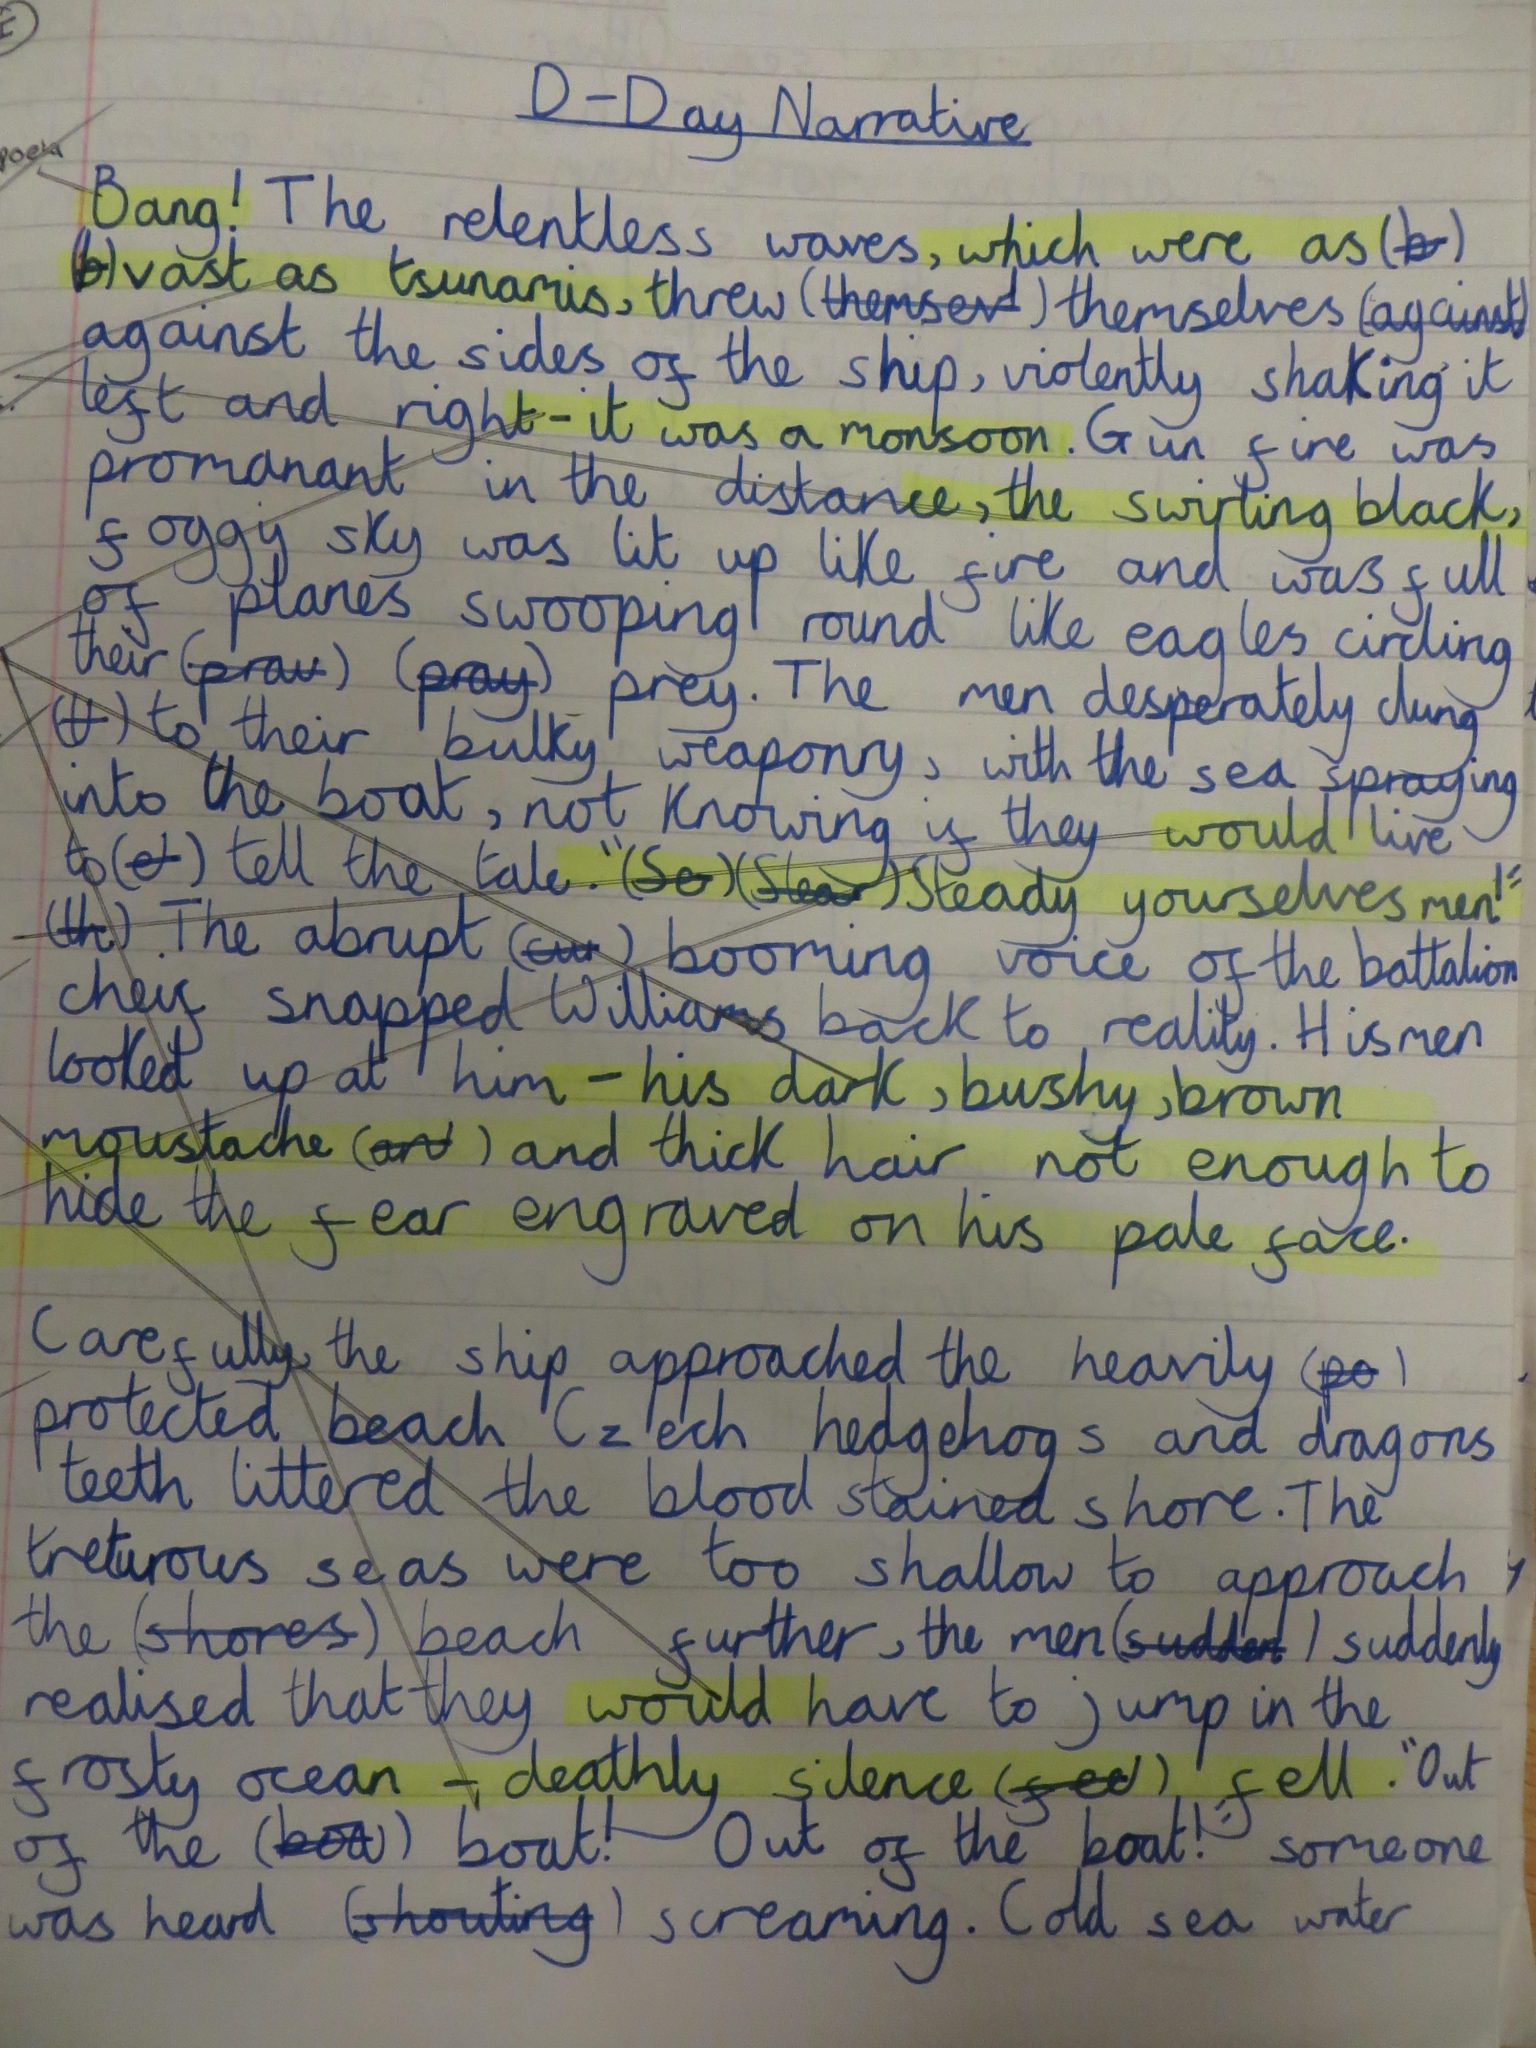 E
poem
D-Day Narrative
Bang! The relentless waves, which were as (b)
(b) vast as tsunamis, threw (themserl) themselves (against)
against the sides of the ship, violently shaking it
left and right - it was a monsoon. Gun fire was
promanant in the distance, the swirling black,
foggy sky was lit up like fire and was full
of planes swooping round like eagles circling
their (prau) (pray) prey. The men desperately clung
(t) to their bulky weaponry, with the sea spraying
into the boat, not knowing if they would live
to (et) tell the tale. "(Se) (Stear) Steady yourselves men!"
(th) The abrupt (cur) booming voice of the battalion
cheif snapped Williams back to reality. His men
looked up at him - his dark, bushy, brown
moustache (and) and thick hair not enough to
hide the fear engraved on his pale face.
Carefully, the ship approached the heavily (po)
protected beach Czech hedgehogs and dragons
teeth littered the blood stained shore. The
treturous seas were too shallow to approach
the (shores) beach further, the men (sudden) suddenly
realised that they would have to jump in the
frosty ocean - deathly silence (fed) fell. "Out
of the (boa) boat! Out of the boat!" someone
was heard (shouting) screaming. Cold sea water